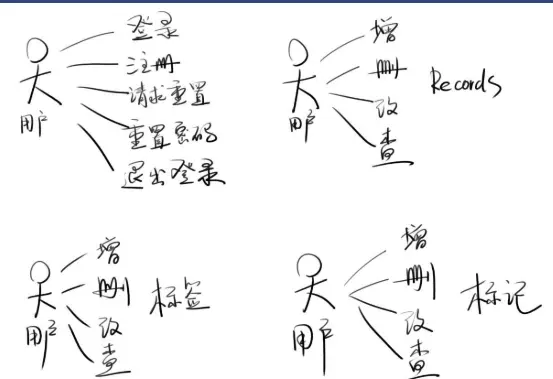 登录
注册
请求重置
重置密码
退出登录
用户
增
删
改
查
Records
用户
增
删
改
查
标签
用户
增
删
改
查
标记
用户